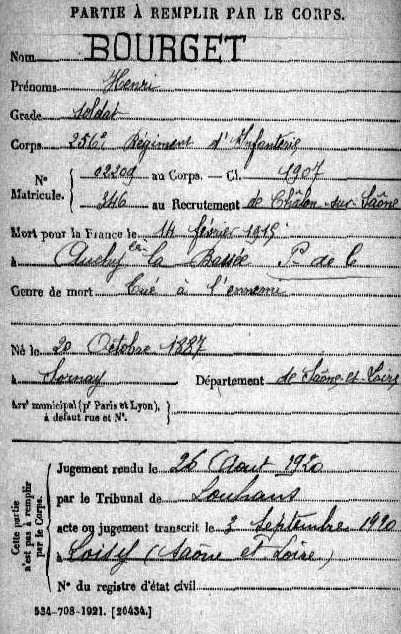 PARTIE À REMPLIR PAR LE CORPS.
Nom BOURGET
Prénoms Henri
Grade Soldat
Corps 256e Régiment d'Infanterie
N° Matricule. 02209 au Corps. — Cl. 1907
346 au Recrutement de Châlon-sur-Saône
Mort pour la France le 14 février 1915
à Auchy les la Bassée P. de C
Genre de mort Tué à l'ennemi
Né le 20 Octobre 1887
à Sornay Département de Saône-et-Loire
Arrt municipal (pr Paris et Lyon),
à défaut rue et N°.
Cette partie
n'est pas à remplir
par le Corps.
Jugement rendu le 26 Août 1920
par le Tribunal de Louhans
acte ou jugement transcrit le 3 Septembre 1920
à Loisy (Saône et Loire)
N° du registre d'état civil
534-708-1921. [26434.]